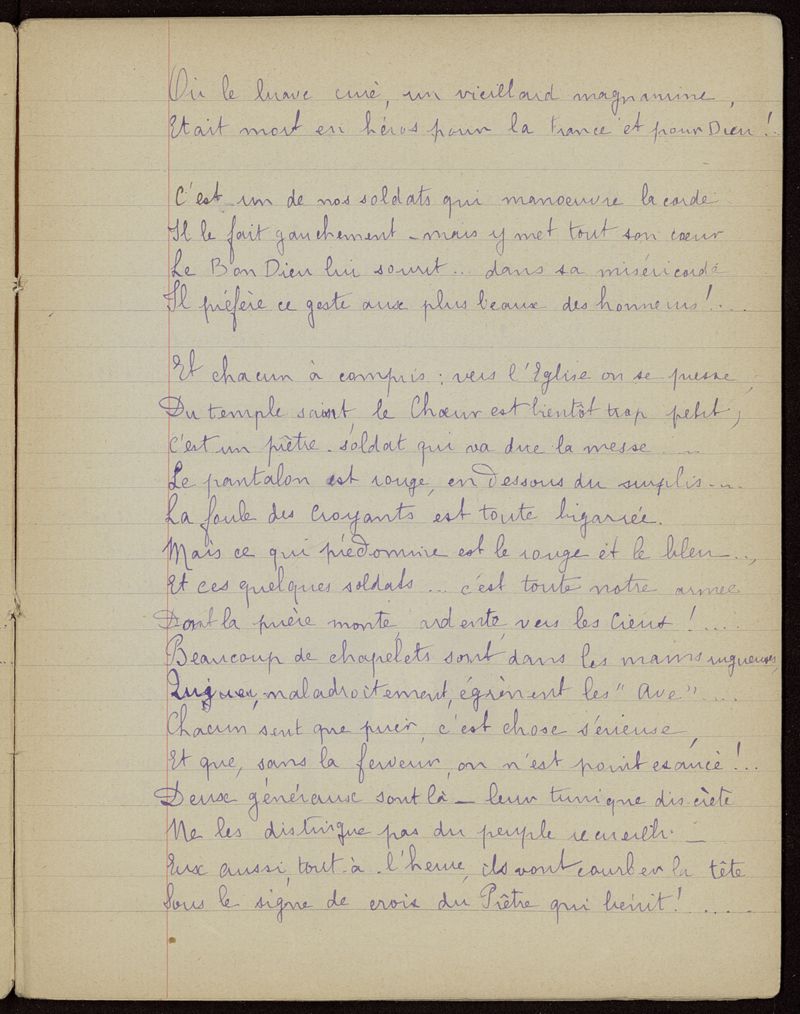 Où le brave curé, un vieillard magnanime,
Etait mort en héros pour la France et pour Dieu !..
C'est un de nos soldats qui manoeuvre la corde
Il le fait gauchement - mais y met tout son cœur
Le Bon Dieu lui sourit... dans sa miséricorde
Il préfère ce geste aux plus beaux des honneurs !....
Et chacun à compris : vers l'Eglise on se presse,
Du temple saint, le Chœur est bientôt trop petit,
C'est un prêtre-soldat qui va dire la messe ....
Le pantalon est rouge, en dessous du surplis....
La foule des Croyants est toute bigarrée.
Mais ce qui prédomine est le rouge et le bleu...,
Et ces quelques soldats... c'est toute notre armée
Dont la prière monte, ardente, vers les Cieux !....
Beaucoup de chapelets sont dans les mains rugueuses,
Qui, maladroitement, égrènent les "Ave"....
Chacun sent que prier, c'est chose sérieuse,
Et que, sans la ferveur, on n'est point exaucé !...
Deux généraux sont là - leur tunique discrète
Ne les distingue pas du peuple recueilli. -
Eux aussi, tout-à-l'heure, ils vont courber la tête
Sous le signe de croix du Prêtre qui bénit ! .....